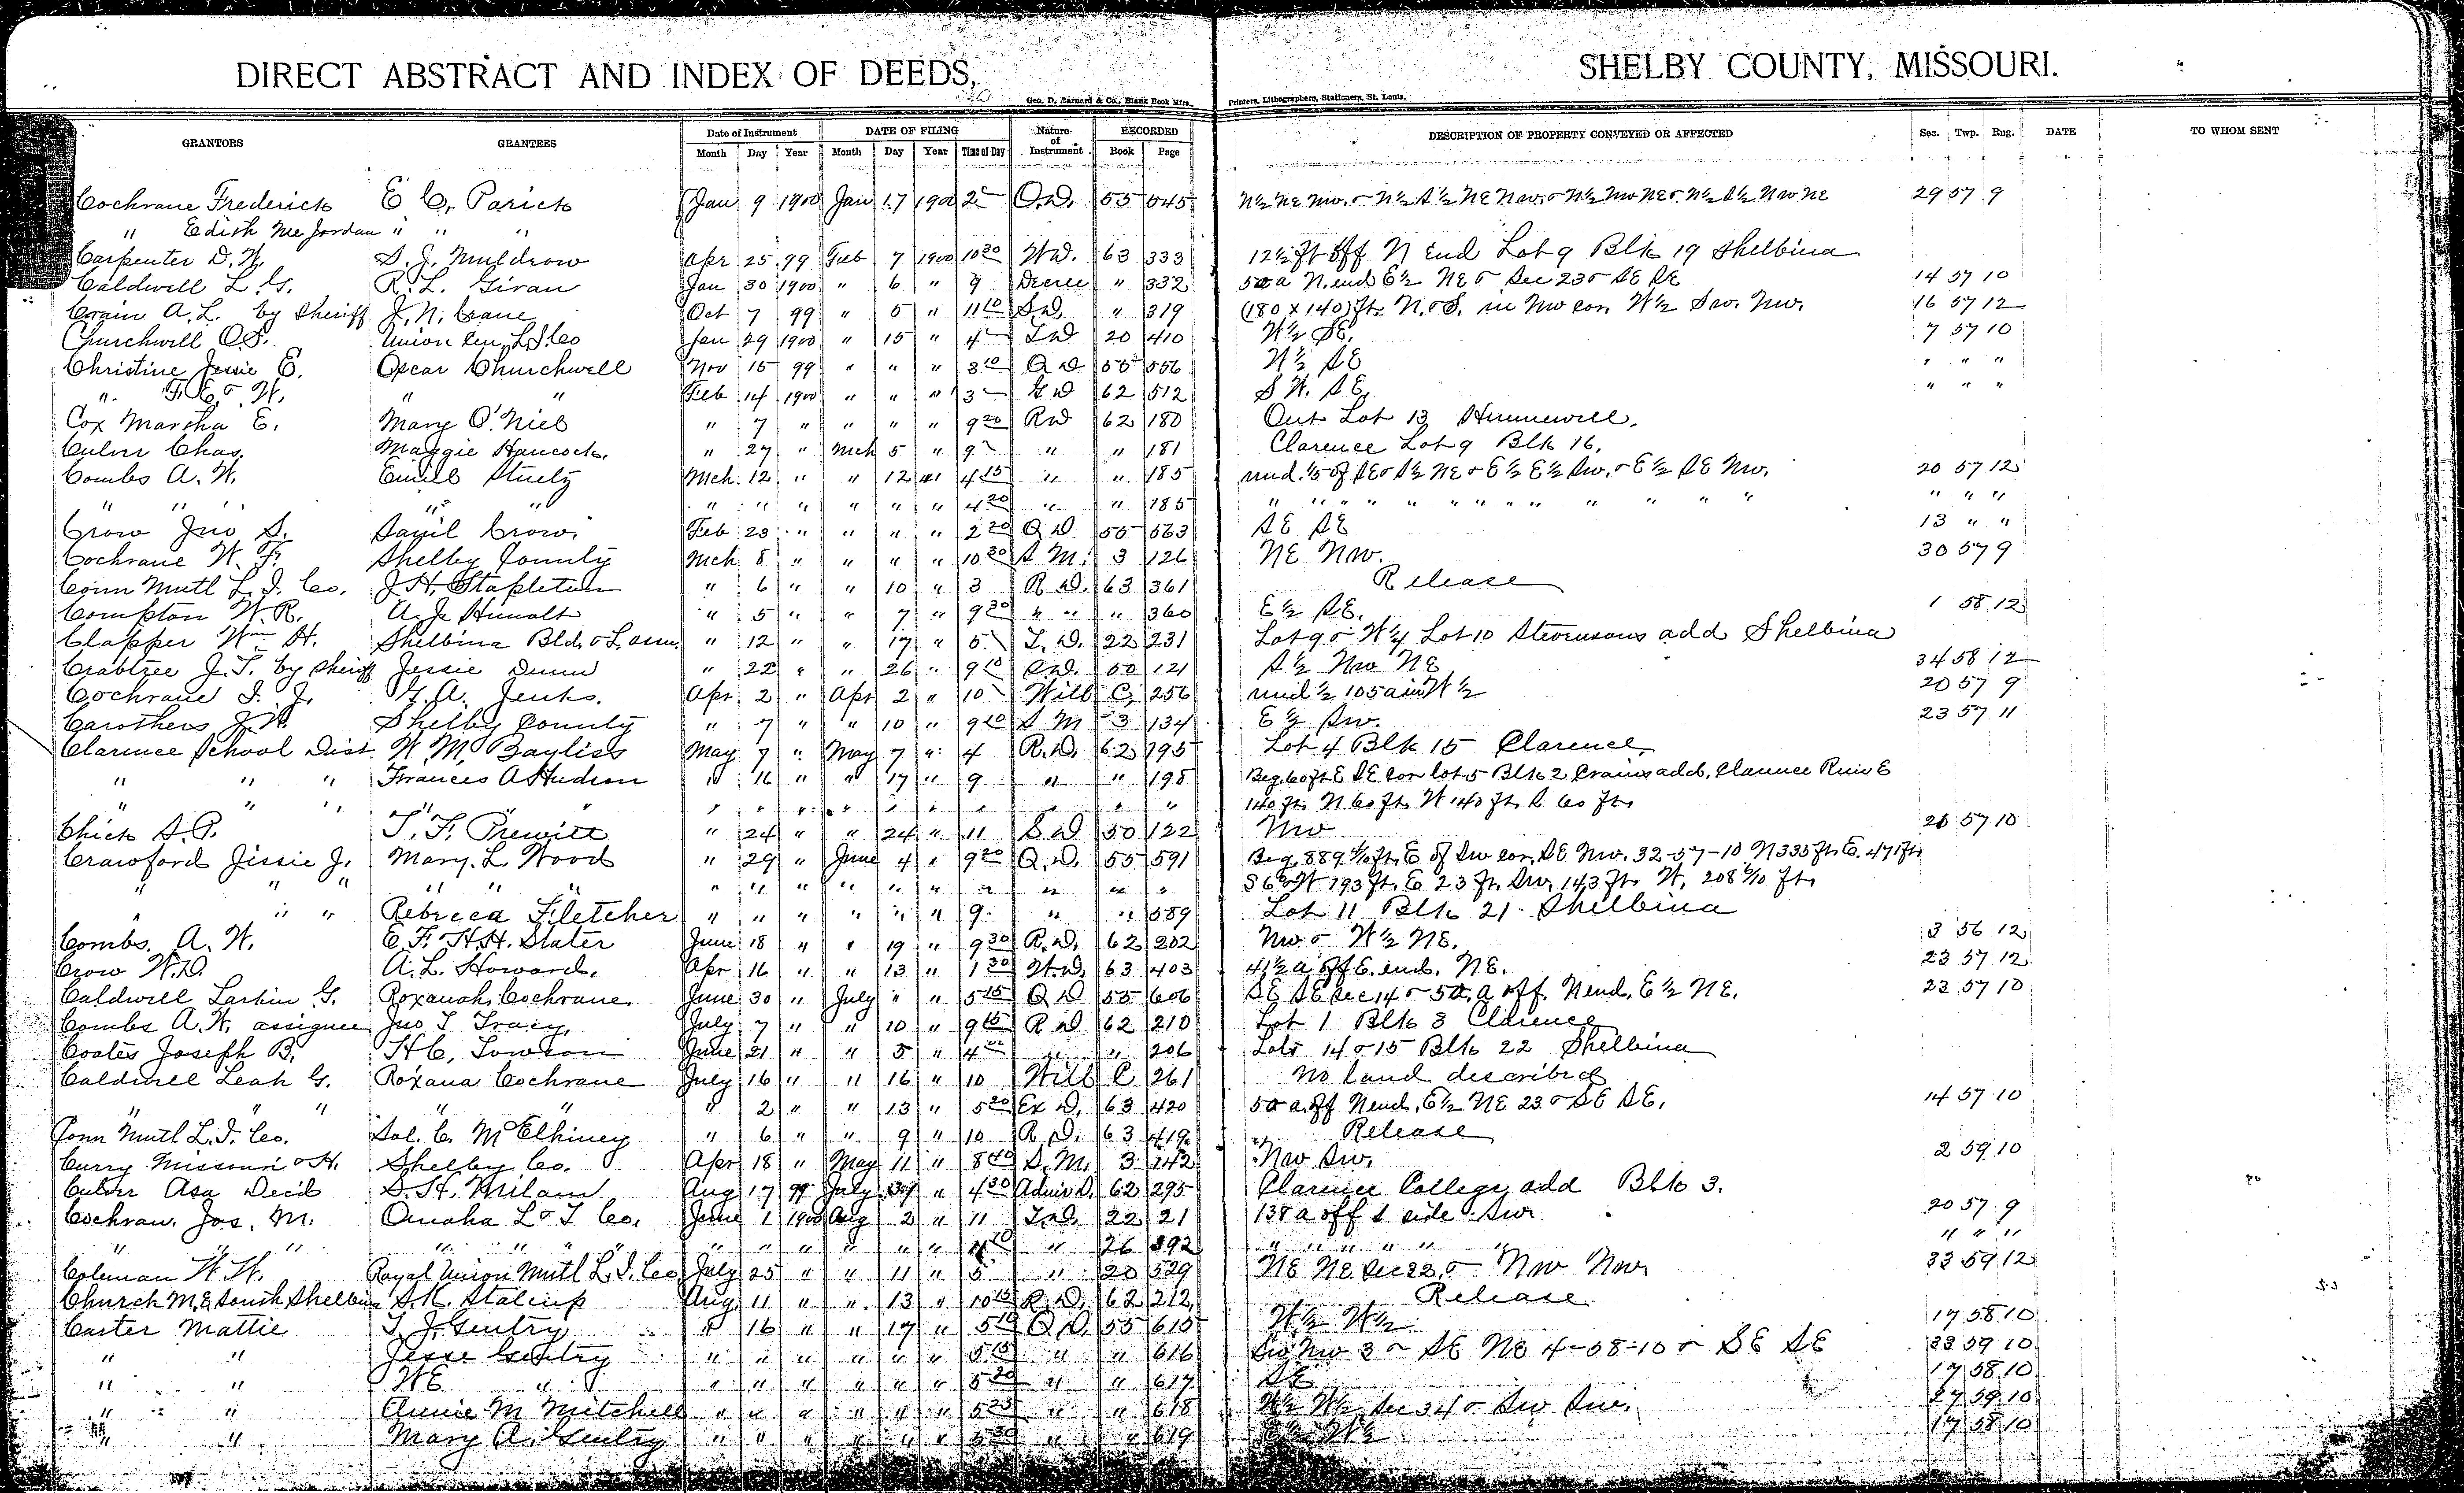 DIRECT ABSTRACT AND INDEX OF DEEDS, SHELBY COUNTY, MISSOURI.
Geo. D. Barnard & Co., Blank Book Mfrs., Printers, Lithographers, Stationers, St. Louis.
GRANTORS GRANTEES Date of Instrument DATE OF FILING Nature of Instrument RECORDED DESCRIPTION OF PROPERTY CONVEYED OR AFFECTED Sec. Twp. Rng. DATE TO WHOM SENT
Month Day Year Month Day Year Time of Day Book Page
Cochrane Frederick E C. Parick Jan 9 1900 Jan 17 1900 2 Q.D. 55 545 N½ NE NW. & N½ S½ NE NW. & N½ NW NE & N½ S½ NW NE 29 57 9
" Edith Nee Jordan " " "
Carpenter D. W. S. J. Muldrow Apr 25 99 Feb 7 1900 10 30 WD. 63 333 12½ ft off N End Lot 9 Blk 19 Shelbina
Caldwell L. G. R. L. Givan Jan 30 1900 " 6 " 9 Decree " 332 50 a N. end E½ NE & Sec 23 & SE SE 14 57 10
Crain A. L. by Sheriff J. N. Crane Oct 7 99 " 5 " 11 10 S.D. " 319 (180 x 140) ft. N. & S. in NW cor. W½ SW. NW. 16 57 12
Churchwell O. S. Union Cen. L. I. Co Jan 29 1900 " 15 " 4 T.D 20 410 W½ SE. 7 57 10
Christine Jessie E. Oscar Churchwell Nov 15 99 " " " 3 10 Q D 55 556 W½ SE " " "
" F. E. & W. " " Feb 14 1900 " " " 3 W D 62 512 S W. SE. " " "
Cox Martha E. Mary O'Niel " 7 " " " " 9 20 R D 62 180 Out Lot 13 Hunnewell.
Culver Chas. Maggie Hancock. " 27 " Mch 5 " 9 " " 181 Clarence Lot 9 Blk 16.
Combs A. W. Emile Stuetz Mch 12 " " 12 " 4 15 " " 185 und. 1/5 of SE & S½ NE & E½ E½ SW. & E½ SE NW. 20 57 12
" " " " " " " " " " " 4 20 " " 185 " " " " " " " " " " " " " " "
Crow Jno S. Saml Crow. Feb 23 " " " " 2 20 Q D. 55 563 SE SE 13 " "
Cochrane W. F. Shelby County Mch 8 " " " " 10 30 S M. 3 126 NE NW. 30 57 9
Conn Mutl L. I. Co. J. H. Stapleton " 6 " " 10 " 3 R D. 63 361 Release
Compton W. R. A. J. Humolt " 5 " " 7 " 9 20 " " " 360 E½ SE. 1 58 12
Clapper Wm H. Shelbina Bld. & L. assn. " 12 " " 17 " 5 T. D. 22 231 Lot 9 & W¼ Lot 10 Stevensons add Shelbina
Crabtree J. T. by Sheriff Jessie Dunn " 22 " " 26 " 9 10 S.D. 50 121 S½ NW NE 34 58 12
Cochrane I. J. F. A. Jenks. Apr 2 " Apr 2 " 10 Will C 256 und ½ 105 a in W½ 20 57 9
Carothers J. W. Shelby County " 7 " " 10 " 9 20 S M 3 134 E½ SW. 23 57 11
Clarence School Dist W. M. Bayliss May 7 " May 7 " 4 R. D. 62 195 Lot 4 Blk 15 Clarence
" " " Frances A Hudson " 16 " " 17 " 9 " " 198 Beg. 60 ft E SE cor lot 5 Blk 2 Crains add. Clarence Run E
" " " " " " " " " " " " " " " 140 ft. N 60 ft. W 140 ft. S 60 ft.
Chick S. P. T. F. Prewitt " 24 " " 24 " 11 S D 50 122 NW 26 57 10
Crawford Jessie J. Mary L. Wood " 29 " June 4 " 9 20 Q. D. 55 591 Beg. 889 4/10 ft. E of SW cor. SE NW. 32-57-10 N 335 ft E. 471 ft
" " " " " " " " " " " " " " " " S 6° W 193 ft. E 23 ft. SW. 143 ft. W. 208 6/10 ft.
" " " Rebecca Fletcher " " " " " " 9 " " 589 Lot 11 Blk 21 Shelbina
Combs. A. W. E. F. H.H. Slater June 18 " " 19 " 9 30 R. D. 62 202 NW & W½ NE. 3 56 12
Crow W. D. A. L. Howard. Apr 16 " " 13 " 1 30 W.D. 63 403 41½ a off E. end. NE. 23 57 12
Caldwell Larkin G. Roxanah Cochrane June 30 " July " " 5 15 Q D 55 606 SE SE Sec 14 & 50. a off. N end. E½ NE. 23 57 10
Combs A. W. assignee Jno T Tracy. July 7 " " 10 " 9 15 R D 62 210 Lot 1 Blk 3 Clarence
Coates Joseph B. H C. Towson June 21 " " 5 " 4 " " 206 Lots 14 & 15 Blk 22 Shelbina
Caldwell Leah G. Roxana Cochrane July 16 " " 16 " 10 Will C 261 No land described
" " " " " " 2 " " 13 " 5 20 Ex D. 63 420 50 a. off N end. E½ NE 23 & SE SE. 14 57 10
Conn Mutl L. I. Co. Sol. C. McElhiney " 6 " " 9 " 10 R D. 63 419 Release
Curry Missouri & H. Shelby Co. Apr 18 " May 11 " 8 40 S. M. 3 142 NW SW. 2 59 10
Culver Asa Decd S. H. Milam Aug 17 99 July 31 " 4 30 Admr D. 62 295 Clarence College add Blk 3.
Cochran. Jos. M. Omaha L & T Co. June 1 1900 Aug 2 " 11 T.D. 22 21 138 a off S side SW. 20 57 9
" " " " " " " " " " " " " " 26 392 " " " " " " " " "
Coleman W. W. Royal Union Mutl L. I. Co July 25 " " 11 " 5 " 20 529 NE NE Sec 32 & NW NW. 33 59 12
Church M. E. South Shelbina S. K. Stalcup Aug. 11 " " 13 " 10 15 R. D. 62 212 Release
Carter Mattie T. J. Gentry " 16 " " 17 " 5 10 Q D. 55 615 W½ W½ 17 58 10
" " Jesse Gentry " " " " " " 5 15 " " 616 SW NW 3 & SE NE 4-58-10 & SE SE 33 59 10
" " W E " " " " " " " 5 20 " " 617 SE 17 58 10
" " Annie M Mitchell " " " " " " 5 25 " " 618 W½ W½ Sec 34 & SW SW. 27 59 10
" " Mary A. Gentry " " " " " " 5 30 " " 619 E½ W½ 17 58 10